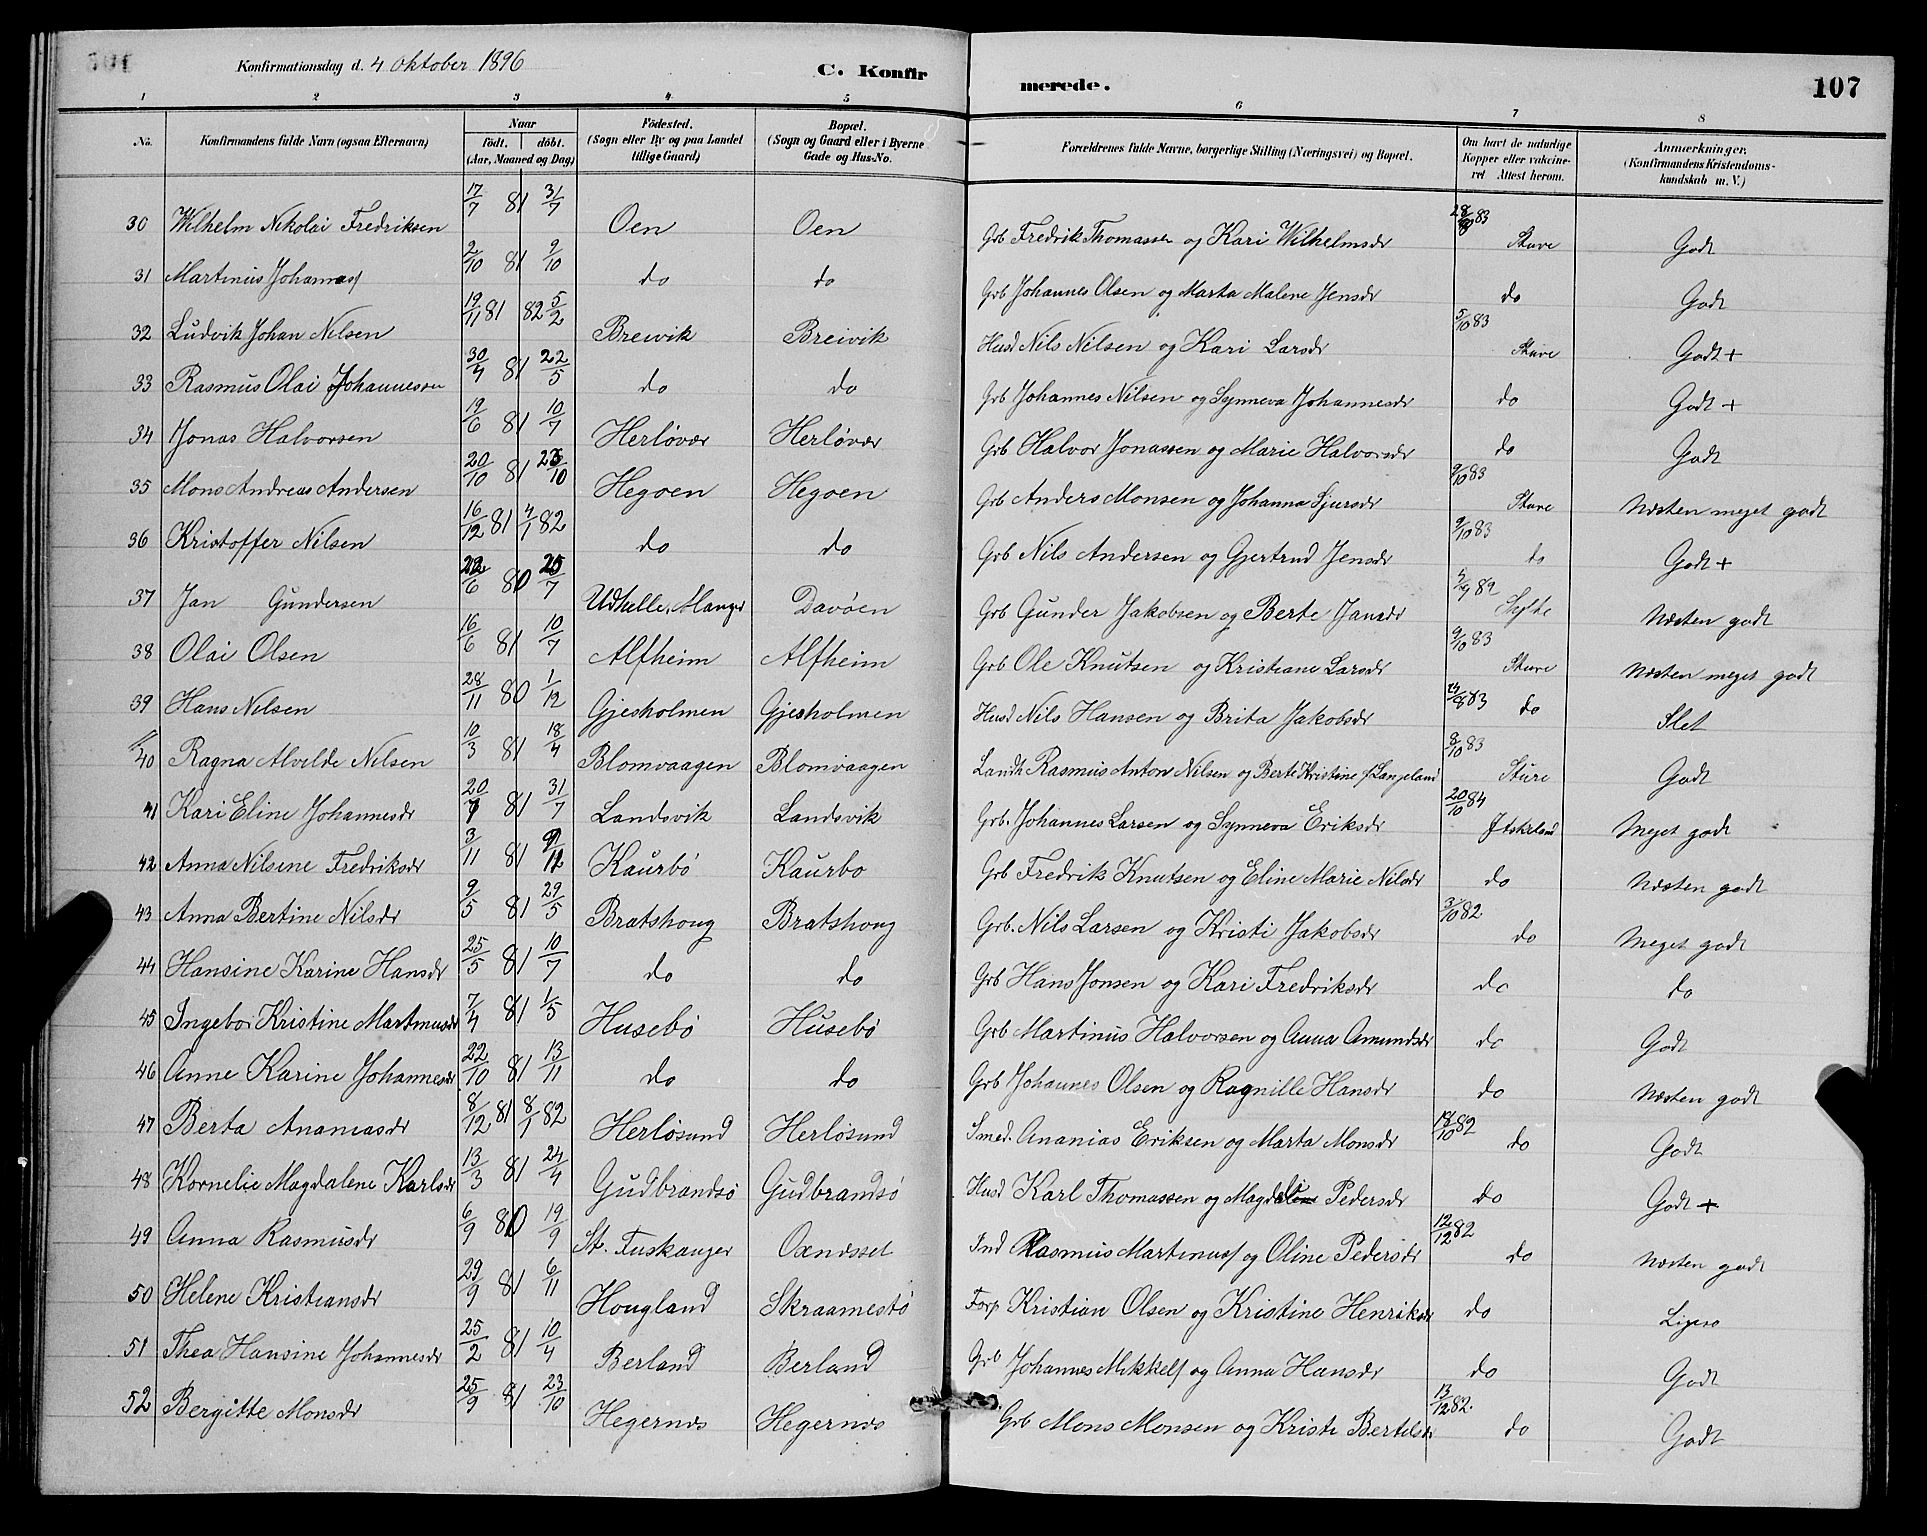 Konfirmationsdag d. 4 oktober 1896
C. Konfirmerede.
107
1 2 3 4 5 6 7 8
No. Konfirmandens fulde Navn (ogsaa Efternavn) Naar födt. döbt. (Aar, Maaned og Dag) Födested. (Sogn eller By og paa Landet tillige Gaard) Bopæl. (Sogn og Gaard eller i Byerne Gade og Hus-No. Forældrenes fulde Navne, borgerlige Stilling (Næringsvei) og Bopæl. Om havt de naturlige Kopper eller vakcineret Attest herom. Anmærkninger. (Konfirmandens Kristendomskundskab m. V.)
30 Wilhelm Nikolai Fredriksen 17/7 81 31/7 Oen Oen Grb Fredrik Thomassen og Kari Wilhelmsdr 83 Sture Godt
31 Martinus Johannesf 2/10 81 9/10 do do Grb Johannes Olsen og Marta Malene Jensdr do Godt
32 Ludvik Johan Nilsen 19/11 81 82 5/2 Breivik Breivik Husd Nils Nilsen og Kari Larsdr 5/10 83 Sture Godt +
33 Rasmus Olai Johannessen 30/4 81 22/5 do do Grb Johannes Nilsen og Synneva Johannesdr do Godt +
34 Jonas Halvorsen 19/6 81 10/7 Herlövær Herlövær Grb Halvor Jonassen og Marie Halvorsdr do Godt
35 Mons Andreas Andersen 20/10 81 Hegoen Hegoen Grb Anders Monsen og Johanna Sjursdr 9/10 83 Sture Næsten meget godt
36 Kristoffer Nilsen 16/12 81 4/1 82 do do Grb Nils Andersen og Gjertrud Jensdr 9/10 83 do Godt +
37 Jan Gundersen 80 Udhelle, Manger Davöen Grb Gunder Jakobsen og Berte Jansdr Næsten godt
38 Olai Olsen 16/6 81 10/7 Alfheim Alfheim Grb Ole Knutsen og Kristiane Larsdr 9/10 83 Sture Næsten meget godt
39 Hans Nilsen 28/11 80 1/12 Gjesholmen Gjesholmen Husd Nils Hansen og Brita Jakobsdr 83 do Slet
40 Ragna Alvilde Nilsen 10/3 81 18/4 Blomvaagen Blomvaagen Landh. Rasmus Anton Nilsen og Berte Kristine f. Langeland 8/10 83 Sture Godt
41 Kari Eline Johannesdr 20/7 81 31/7 Landsvik Landsvik Grb. Johannes Larsen og Synneva Eriksdr 20/10 84 Meget godt
42 Anna Nilsine Fredriksdr 3/11 81 Kaurbö Kaurbo Grb Fredrik Knutsen og Eline Marie Nilsdr do Næsten godt
43 Anna Bertine Nilsdr 9/5 81 29/5 Bratshoug Bratshoug Grb. Nils Larsen og Kristi Jakobsdr 3/10 82 do Meget godt
44 Hansine Karine Hansdr 25/5 81 10/7 do do Grb Hans Jonsen og Kari Fredriksdr do do
45 Ingebor Kristine Martinusdr 7/4 81 1/5 Husebö Husebö Grb Martinus Halvorsen og Anna Amundsdr do Godt
46 Anne Karine Johannesdr 22/10 81 13/11 do do Grb Johannes Olsen og Ragnille Hansdr do Næsten godt
47 Berta Ananiasdr 8/12 81 8/1 82 Herlösund Herlösund Smed. Ananias Eriksen og Marta Monsdr 82 do Godt
48 Kornelie Magdalene Karlsdr 13/3 81 24/4 Gudbrandsö Gudbrandsö Husd Karl Thomassen og Magdalene Pedersdr do Godt +
49 Anna Rasmusdr 6/9 80 19/9 St. Fuskanger Oxnesset Ind Rasmus Martinusf og Oline Pedersdr 12/12 82 do Næsten godt
50 Helene Kristiansdr 29/9 81 6/11 Hougland Skraamestö Forp Kristian Olsen og Kristine Henriksdr do Ligesø
51 Thea Hansine Johannesdr 25/2 81 10/4 Berland Berland Grb Johannes Mikkelsf og Anna Hansdr do Godt
52 Bergitte Monsdr 25/9 81 23/10 Hegernes Hegernes Grb Mons Monsen og Kristi Bertelsdr 13/12 82. do Godt